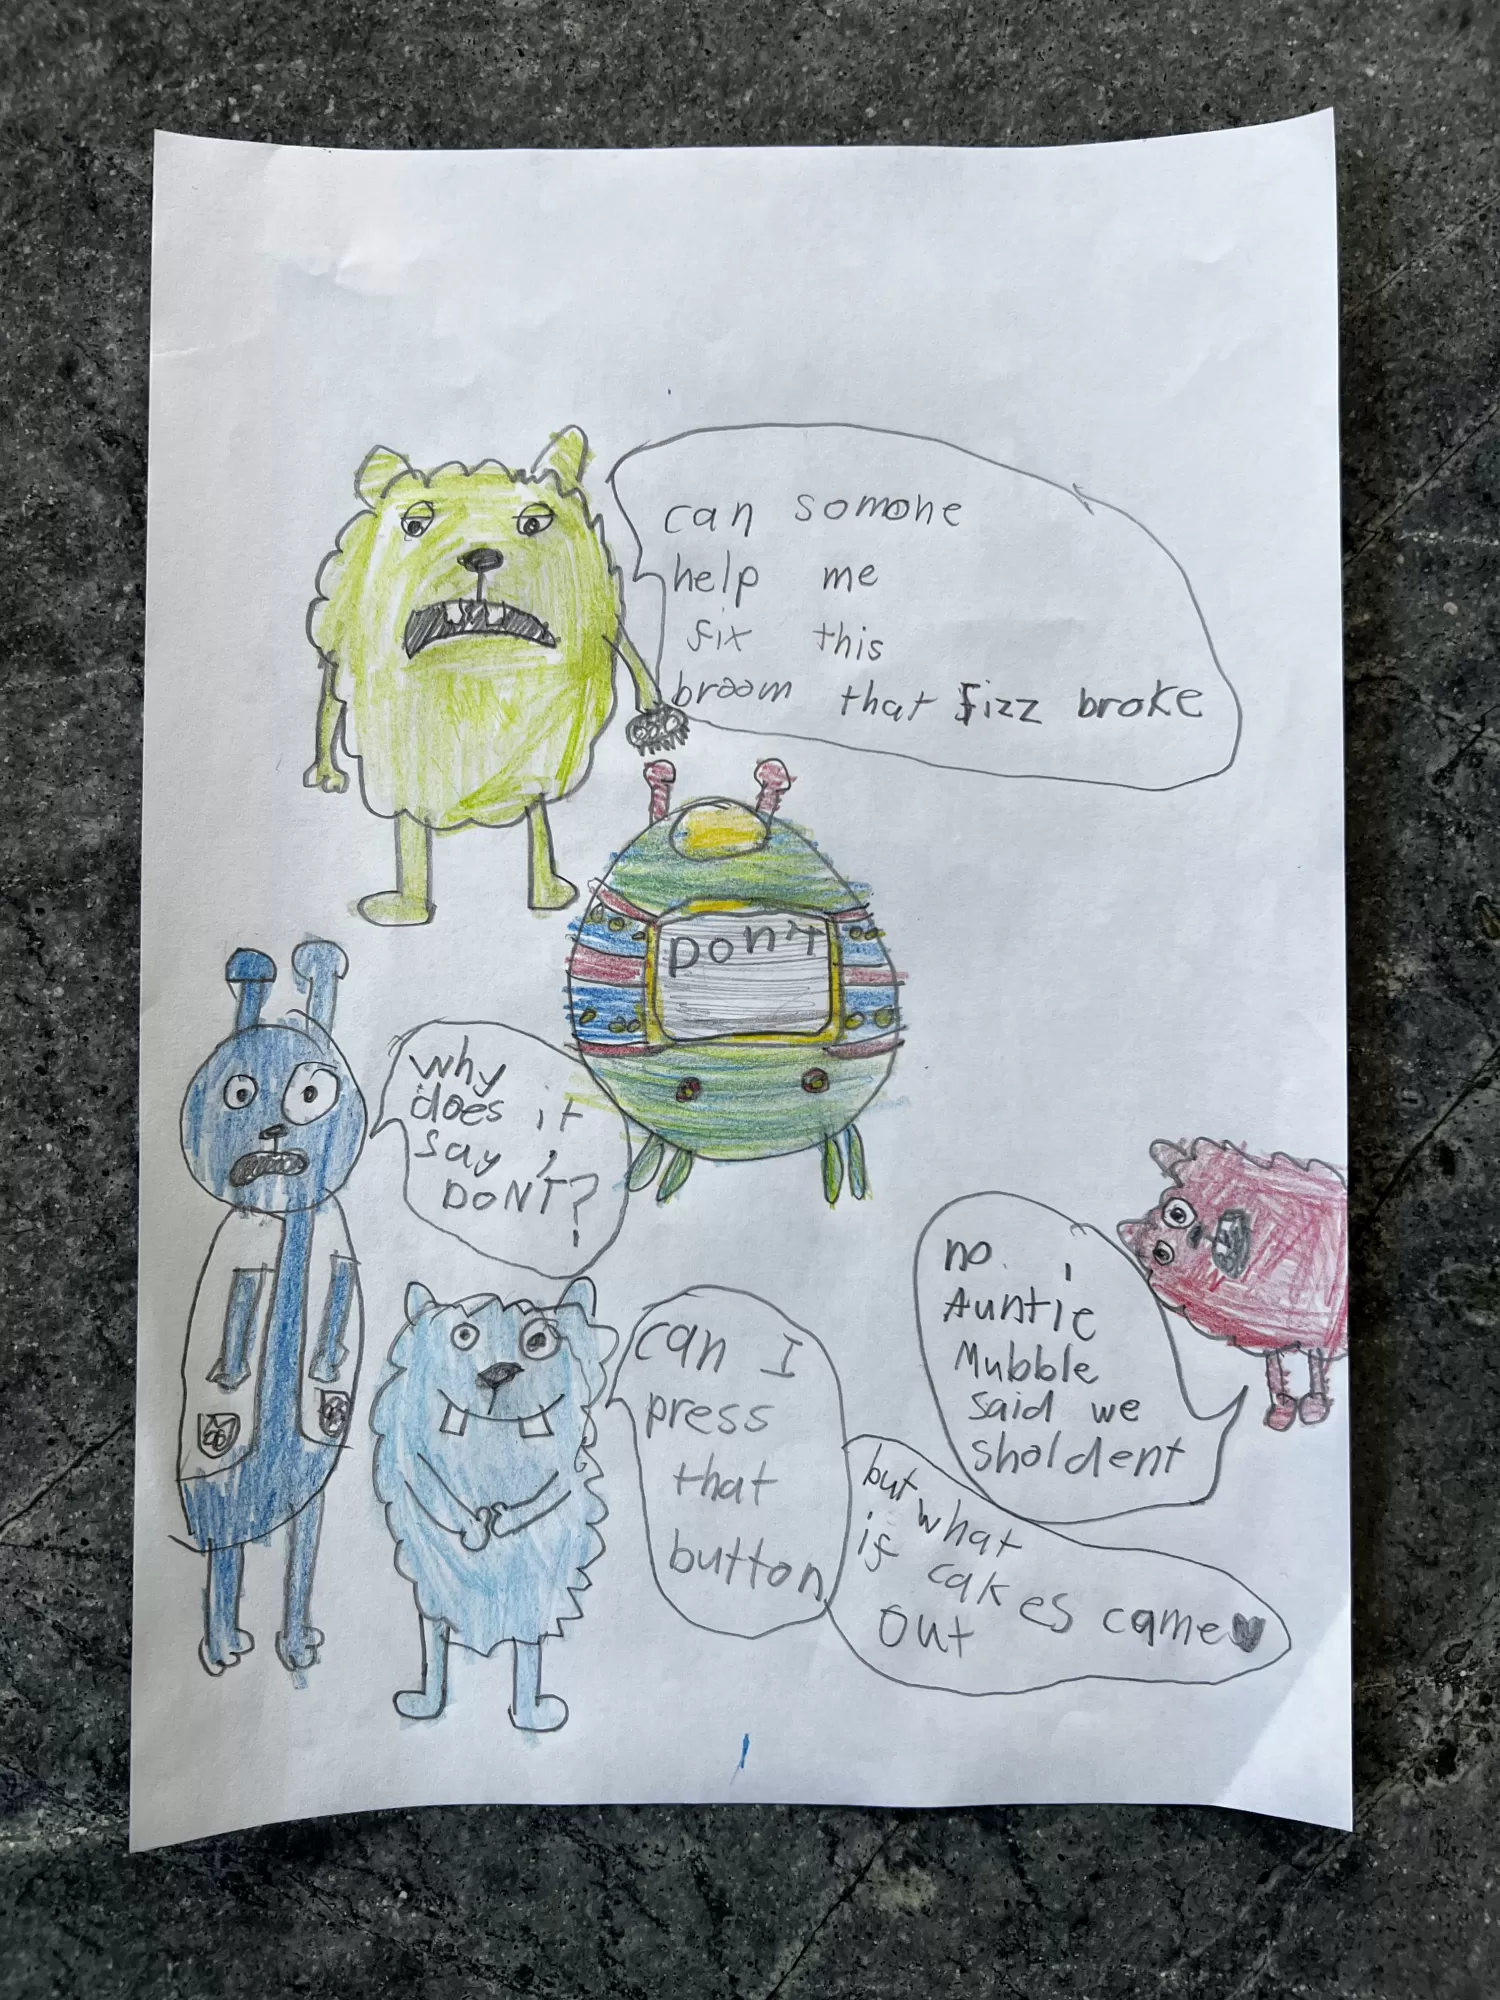 can somone
help me
fix this
broom that Fizz broke
Don't
why
does it
say
DON'T?
can I
press
that
button
no
Auntie
Mubble
said we
sholdent
but what
if cakes came♥
out